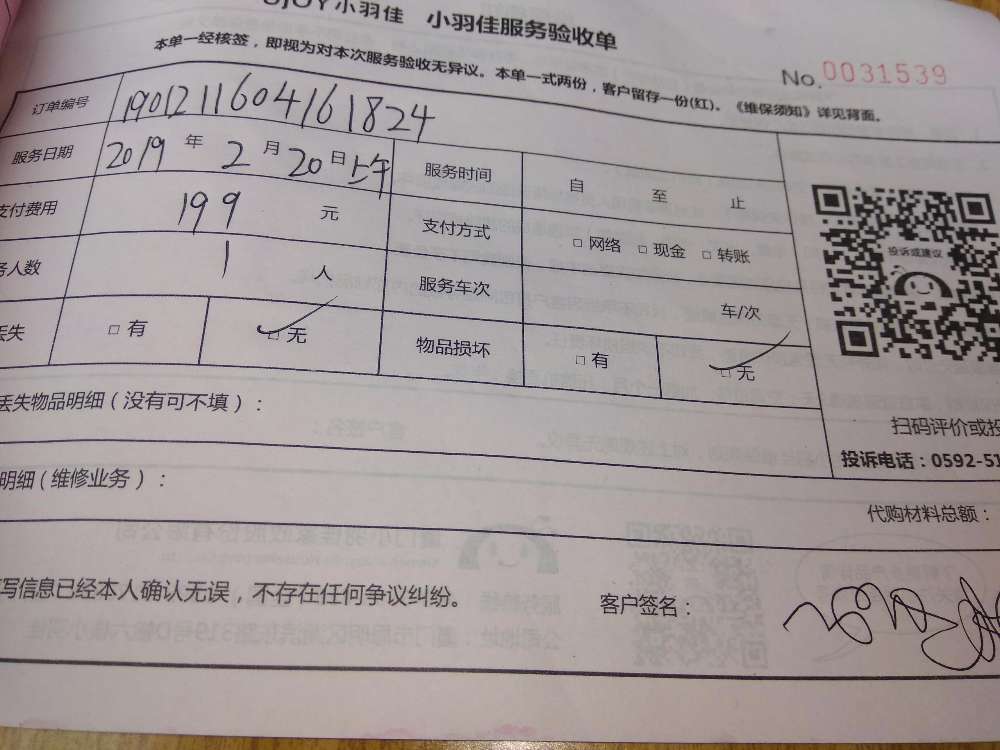 OJOY小羽佳 小羽佳服务验收单
本单一经核签，即视为对本次服务验收无异议。本单一式两份，客户留存一份(红)。《维保须知》详见背面。
No.0031539
订单编号 1901211604161824
服务日期 2019 年 2 月 20 日 上午 服务时间 自 至 止
支付费用 199 元 支付方式 □ 网络 □ 现金 □ 转账
务人数 1 人 服务车次 车/次
丢失 □ 有 □ 无 物品损坏 □ 有 □ 无
投诉或建议
丢失物品明细（没有可不填）：
扫码评价或投
投诉电话：0592-51
明细（维修业务）：
代购材料总额：
写信息已经本人确认无误，不存在任何争议纠纷。
客户签名：